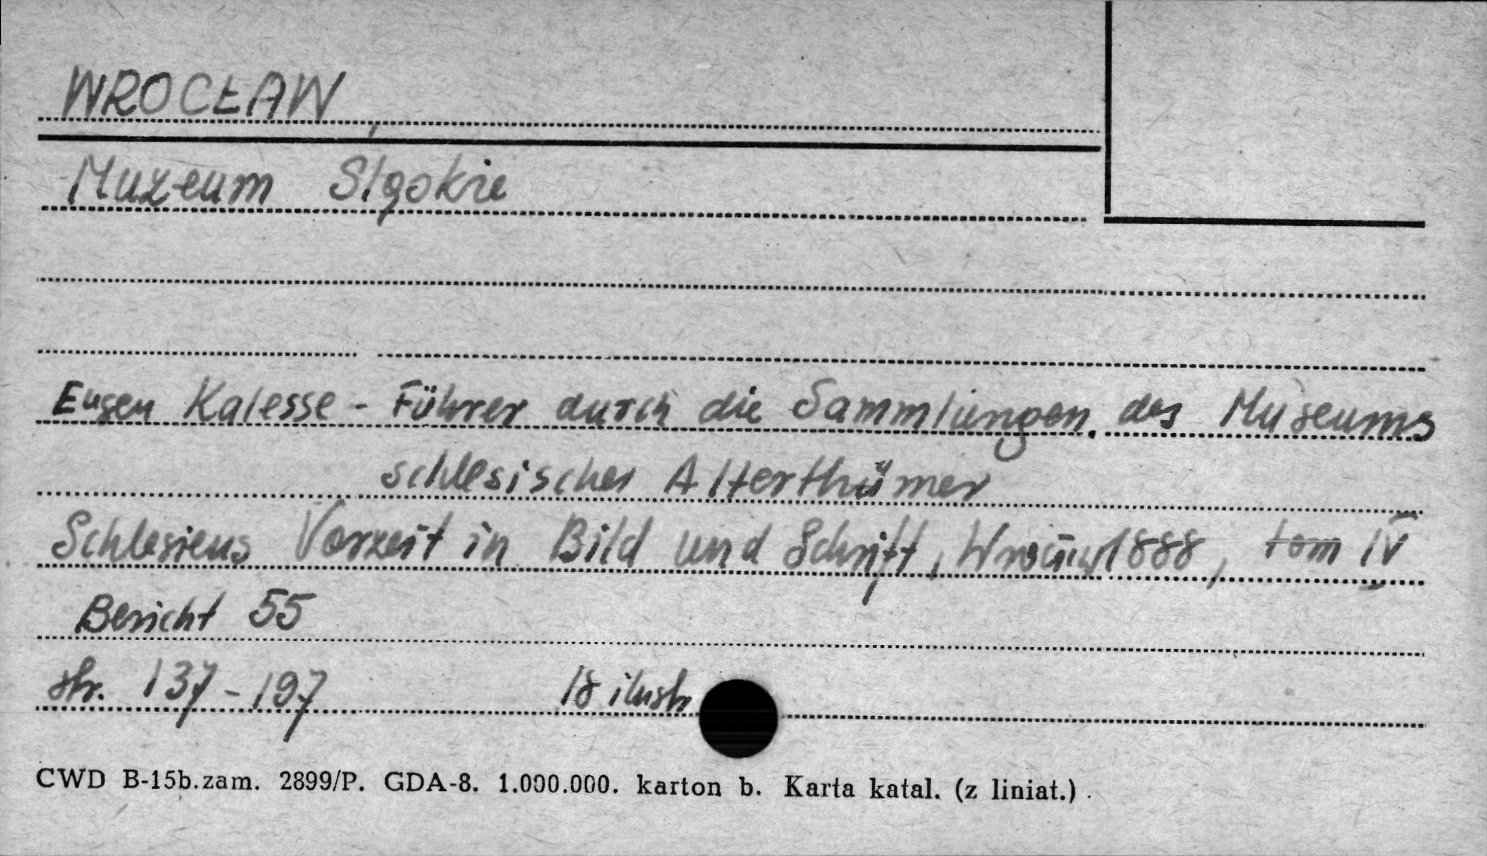 WROCŁAW
Muzeum Śląskie
Eugen Kalesse - Führer durch die Sammlungen des Museums
schlesischer Alterthümer
Schlesiens Vorzeit in Bild und Schrift, Wrocław 1888, tom IV
Bericht 55
str. 137-197 18 ilustr
CWD B-15b.zam. 2899/P. GDA-8. 1.000.000. karton b. Karta katal. (z liniat.)